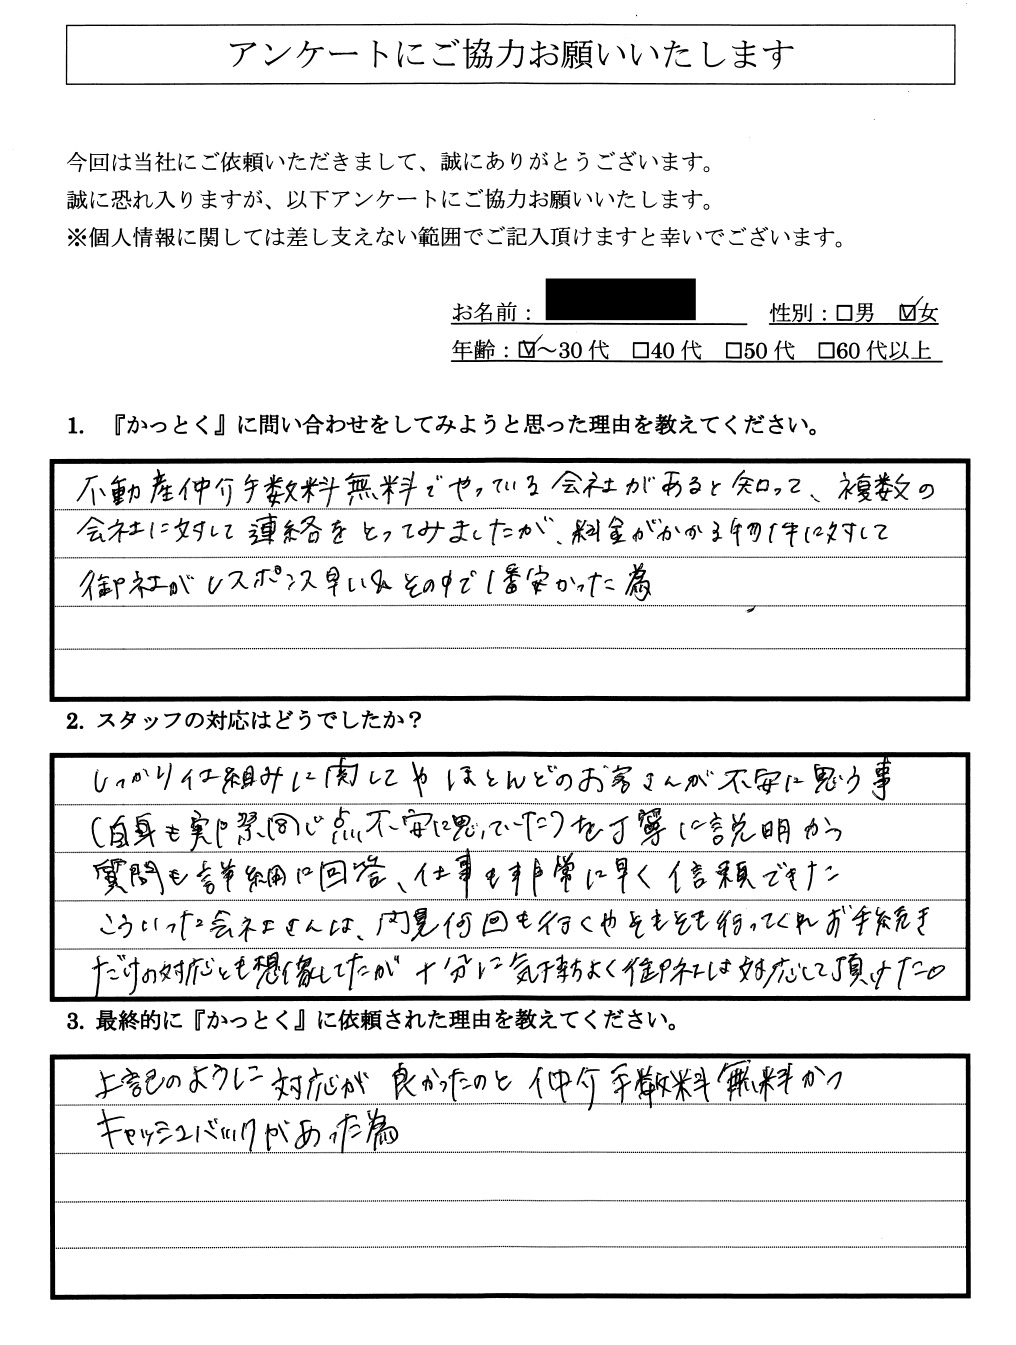 アンケートにご協力お願いいたします
今回は当社にご依頼いただきまして、誠にありがとうございます。
誠に恐れ入りますが、以下アンケートにご協力お願いいたします。
※個人情報に関しては差し支えない範囲でご記入頂けますと幸いでございます。
お名前： 性別：□男 ☑女
年齢：☑～30代 □40代 □50代 □60代以上
1. 『かっとく』に問い合わせをしてみようと思った理由を教えてください。
不動産仲介手数料無料でやっている会社があると知って、複数の
会社に対して連絡をとってみましたが、料金がかかる物件に対して
御社がレスポンス早い& その中で1番安かった為
2. スタッフの対応はどうでしたか？
しっかり仕組みに関してや ほとんどのお客さんが不安に思う事
(自身も実際同じ点不安に思っていた)を丁寧に説明かつ
質問も詳細に回答、仕事も非常に早く信頼できた
こういった会社さんは、内見何回も行くやそもそも行ってくれお手続き
だけの対応とも想像してたが 十分に気持ちよく御社は対応して頂けた。
3. 最終的に『かっとく』に依頼された理由を教えてください。
上記のように対応が良かったのと 仲介手数料無料かつ
キャッシュバックがあった為